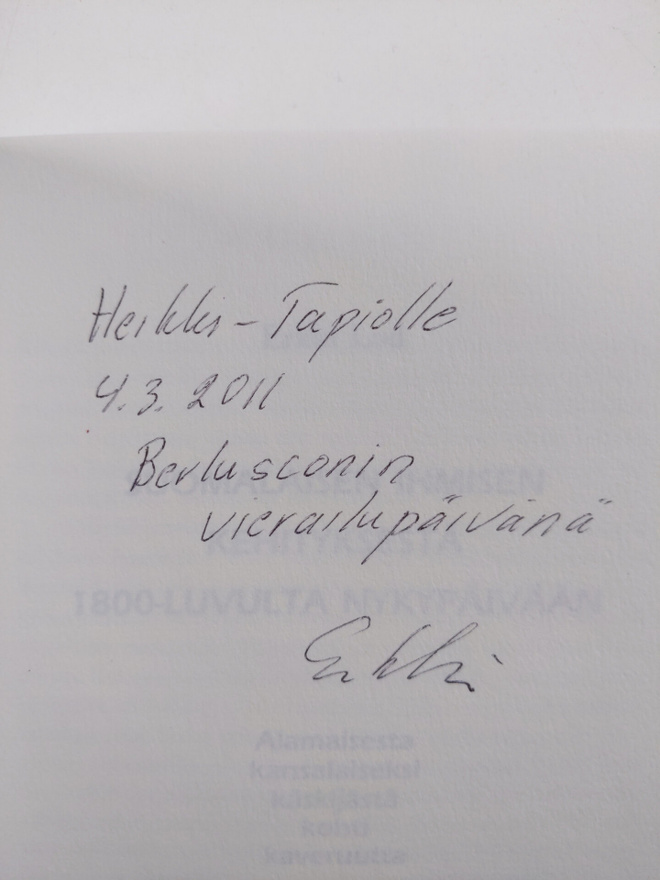 Heikki-Tapiolle
4.3.2011
Berlusconin
vierailupäivänä
Erkki
SUOMALAISEN IHMISEN
KEHITYKSESTÄ
1800-LUVULTA NYKYPÄIVÄÄN
Alamaisesta
kansalaiseksi
käskijästä
kohti
kaveruutta